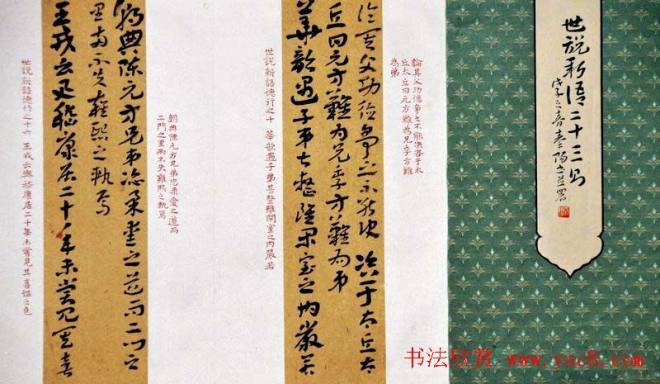 世說新语二十三则
論其父功德爭之不能決咨于太
丘太丘曰元方難為兄季方難
為弟
论其父功德争之不能决咨于太丘太
丘曰元方難为兄季方難为弟
華歆遇子弟甚整雖闲室之内嚴若
世說新語德行之十 華歆遇子弟甚整雖閒室之內嚴若
朝典陳元方兄弟恣柔愛之道而
二門之里兩不失雍熙之軌焉
朝典陈元方兄弟恣柔愛之道而二门之
里两不失雍熙之軌焉
王戎云与嵇康居二十年未尝见其喜
世說新語德行之十六 王戎云與嵇康居二十年未嘗見其喜慍之色
书法欣赏 www.yac8.com